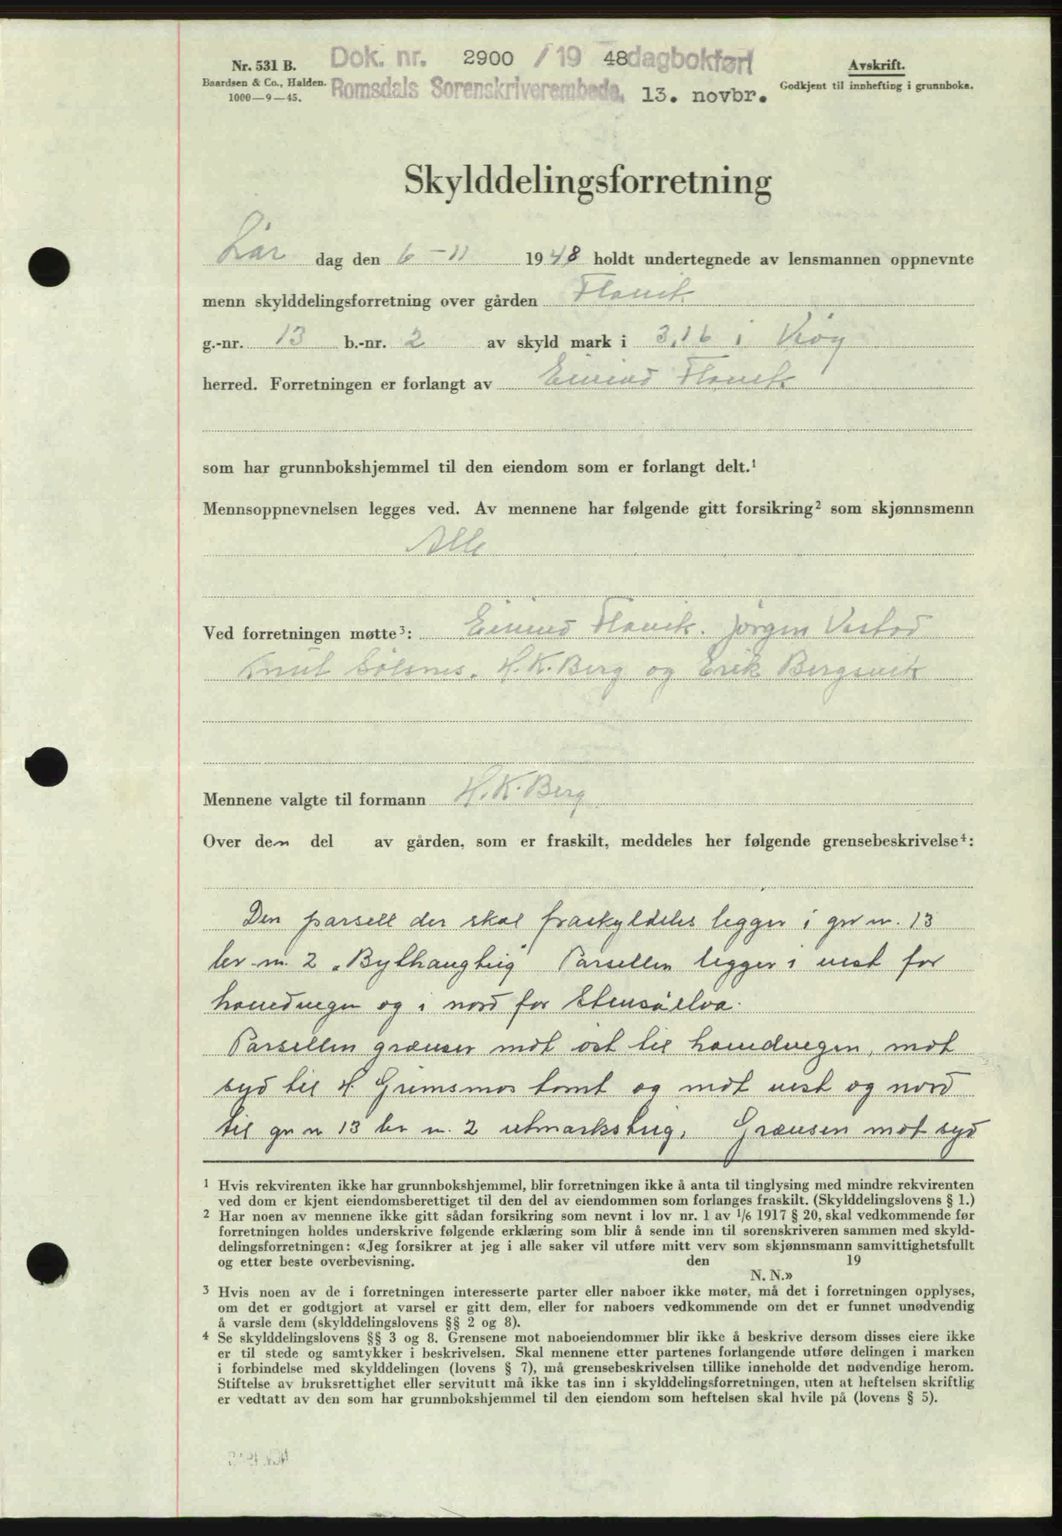 Nr. 531 B.
Baardsen & Co., Halden.
1000—9—45.
Dok. nr. 2900 / 19 48 dagbokført
Romsdals Sorenskriverembede, 13. novbr.
Avskrift.
Godkjent til innhefting i grunnboka.
Skylddelingsforretning
Lør dag den 6-11 1948 holdt undertegnede av lensmannen oppnevnte
menn skylddelingsforretning over gården Flovik
g.-nr. 13 b.-nr. 2 av skyld mark i 3,16 i Vøy
herred. Forretningen er forlangt av Eivind Flovik
som har grunnbokshjemmel til den eiendom som er forlangt delt.¹
Mennsoppnevnelsen legges ved. Av mennene har følgende gitt forsikring² som skjønnsmenn
Alle
Ved forretningen møtte³: Eivind Flovik. Jørgen Vestad
Knut Sølsnes. H. K. Berg og Erik Bergsvik
Mennene valgte til formann H. K. Berg
Over den del av gården, som er fraskilt, meddeles her følgende grensebeskrivelse⁴:
Den parsell der skal fraskyldeles legger i gr n. 13
br. n. 2 Parsellen legger i vest for
hovedvegen og i nord for Stensåelva.
Parsellen grænser mot øst til hovedvegen, mot
syd til H. Grimsmos tomt og mot vest og nord
til gr n 13 br n. 2 utmarksteig. Grænsen mot syd
¹ Hvis rekvirenten ikke har grunnbokshjemmel, blir forretningen ikke å anta til tinglysing med mindre rekvirenten
ved dom er kjent eiendomsberettiget til den del av eiendommen som forlanges fraskilt. (Skylddelingslovens § 1.)
² Har noen av mennene ikke gitt sådan forsikring som nevnt i lov nr. 1 av 1/6 1917 § 20, skal vedkommende før
forretningen holdes underskrive følgende erklæring som blir å sende inn til sorenskriveren sammen med skyld-
delingsforretningen: «Jeg forsikrer at jeg i alle saker vil utføre mitt verv som skjønnsmann samvittighetsfullt
og etter beste overbevisning. den 19
N. N.»
³ Hvis noen av de i forretningen interesserte parter eller naboer ikke møter, må det i forretningen opplyses,
om det er godtgjort at varsel er gitt dem, eller for naboers vedkommende om det er funnet unødvendig
å varsle dem (skylddelingslovens §§ 2 og 8).
⁴ Se skylddelingslovens §§ 3 og 8. Grensene mot naboeiendommer blir ikke å beskrive dersom disses eiere ikke
er til stede og samtykker i beskrivelsen. Skal mennene etter partenes forlangende utføre delingen i marken
i forbindelse med skylddelingen (lovens § 7), må grensebeskrivelsen tillike inneholde det nødvendige herom.
Stiftelse av bruksrettighet eller servitutt må ikke tas inn i skylddelingsforretningen, uten at heftelsen skriftlig
er vedtatt av den som har grunnbokshjemmel til den eiendom som heftelsen skal hvile på (lovens § 5).